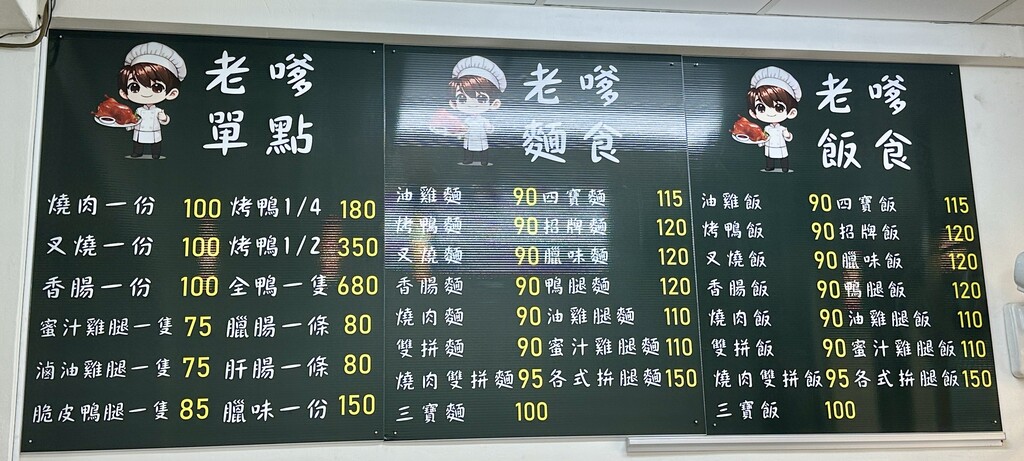 老嗲
單點
燒肉一份 100 烤鴨1/4 180
叉燒一份 100 烤鴨1/2 350
香腸一份 100 全鴨一隻 680
蜜汁雞腿一隻 75 臘腸一條 80
滷油雞腿一隻 75 肝腸一條 80
脆皮鴨腿一隻 85 臘味一份 150
老嗲
麵食
油雞麵 90 四寶麵 115
烤鴨麵 90 招牌麵 120
叉燒麵 90 臘味麵 120
香腸麵 90 鴨腿麵 120
燒肉麵 90 油雞腿麵 110
雙拼麵 90 蜜汁雞腿麵 110
燒肉雙拼麵 95 各式拚腿麵 150
三寶麵 100
老嗲
飯食
油雞飯 90 四寶飯 115
烤鴨飯 90 招牌飯 120
叉燒飯 90 臘味飯 120
香腸飯 90 鴨腿飯 120
燒肉飯 90 油雞腿飯 110
雙拼飯 90 蜜汁雞腿飯 110
燒肉雙拼飯 95 各式拚腿飯 150
三寶飯 100